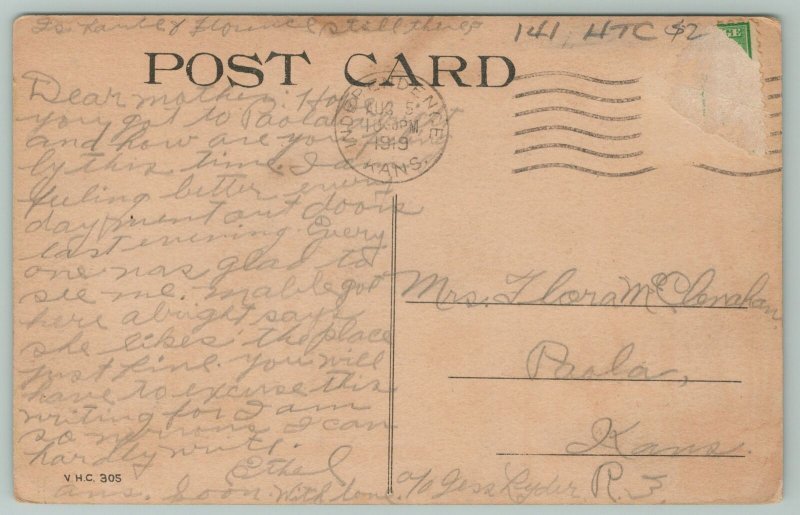 Is & Florence still there
141 HTC $2
POST CARD
INDEPENDENCE
AUG 5
PM
1919
KANS.
Dear mother: How
you got to Paola
and how are you
by this time. I am
feeling better every
day, went out doors
last evening. Every
one was glad to
see me. Mable got
here alright says
she likes the place
just fine. You will
have to excuse this
writing for I am
so nervous I can
hardly write.
Ethel
ans. soon. With love.
Mrs. Flora McClenahan.
Paola,
Kans.
c/o Jess Ryder R. 3.
V.H.C. 305